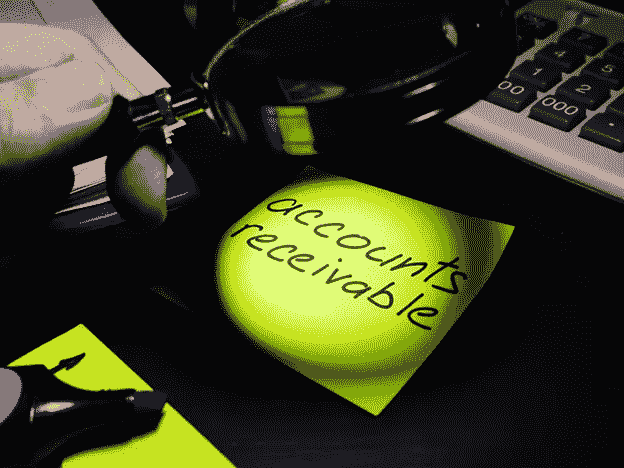 accounts
receivable
4
5
1
2
00
000